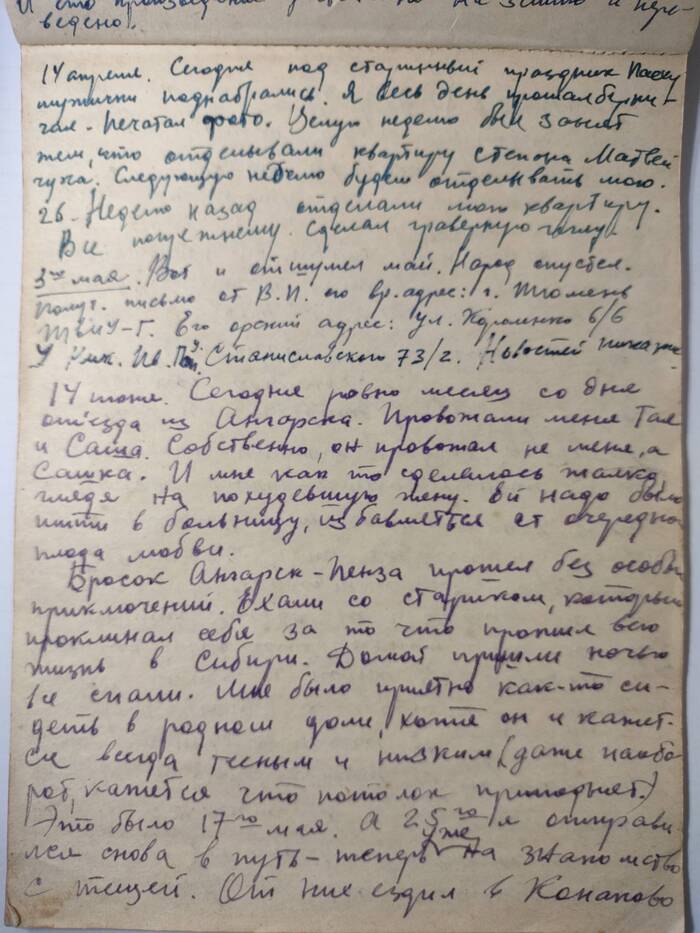 ведено.
14 апреля. Сегодня под старинный праздник Пасху
мужички поднабрались. Я весь день
печатал фото. Целую неделю был занят
тем, что отделывали квартиру Степана Матвей
чука. Следующую неделю будем отделывать мою.
26. Неделю назад отделали мою квартиру.
Все по-прежнему. Сделал граверную
3го мая. Вот и отшумел май. Народ опустел.
Получ. письмо от В.П. его вр. адрес: г. Тюмень
ТВИУ-Г. Его орский адрес: ул. Короленко 6/6
У Ник. Ив. Станиславского 73/2. Новостей
14 июня. Сегодня ровно месяц со дня
отъезда из Ангарска. Провожали меня Тая
и Саша. Собственно, он провожал не меня, а
Сашка. И мне как то сделалось жалко
глядя на похудевшую жену. Ей надо было
идти в больницу, избавляться от очередно
плода любви.
Бросок Ангарск-Пенза прошел без особых
приключений. Ехали со стариком, который
проклинал себя за то что прожил всю
жизнь в Сибири. Домой пришли ночью
все спали. Мне было приятно как-то си-
деть в родном доме, хотя он и кажет-
ся всегда тесным и низким (даже наобо
рот, кажется что потолок приподнят.)
Это было 17го мая. А 25го я отправи
лся снова в путь-теперь уже на знакомство
с тещей. От нее ездил в Конаково